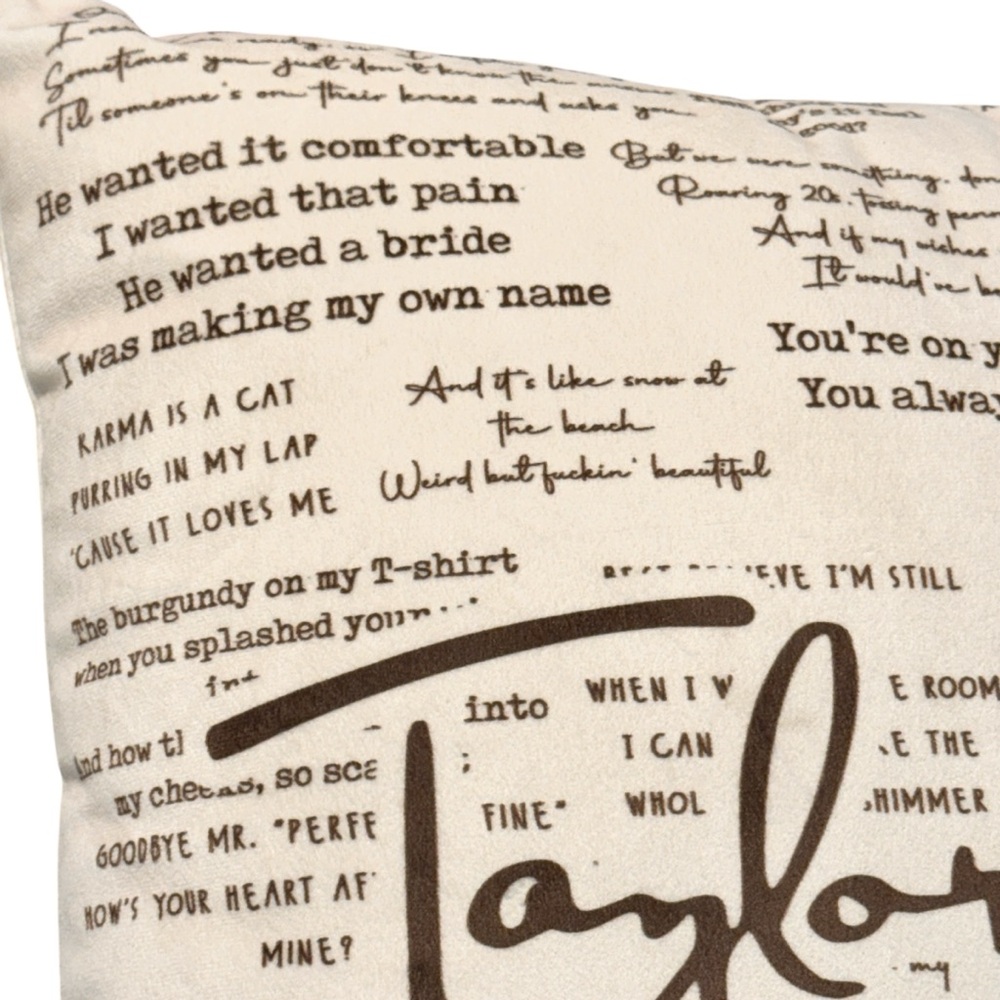 Sometimes you just don't know the answer
'Til someone's on their knees and asks you
good?
He wanted it comfortable
I wanted that pain
He wanted a bride
I was making my own name
But we were something, don
Roaring 20s, tossing penn
And if my wishes
It would've be
You're on y
You alway
KARMA IS A CAT
PURRING IN MY LAP
'CAUSE IT LOVES ME
And it's like snow at
the beach
Weird but fuckin' beautiful
The burgundy on my T-shirt
when you splashed your
into
EVE I'M STILL
WHEN I W
E ROOM
I CAN
E THE
And how t
my cheeks, so sca
FINE"
WHOL
SHIMMER
GOODBYE MR. "PERFE
HOW'S YOUR HEART AF
MINE?
Taylor
my